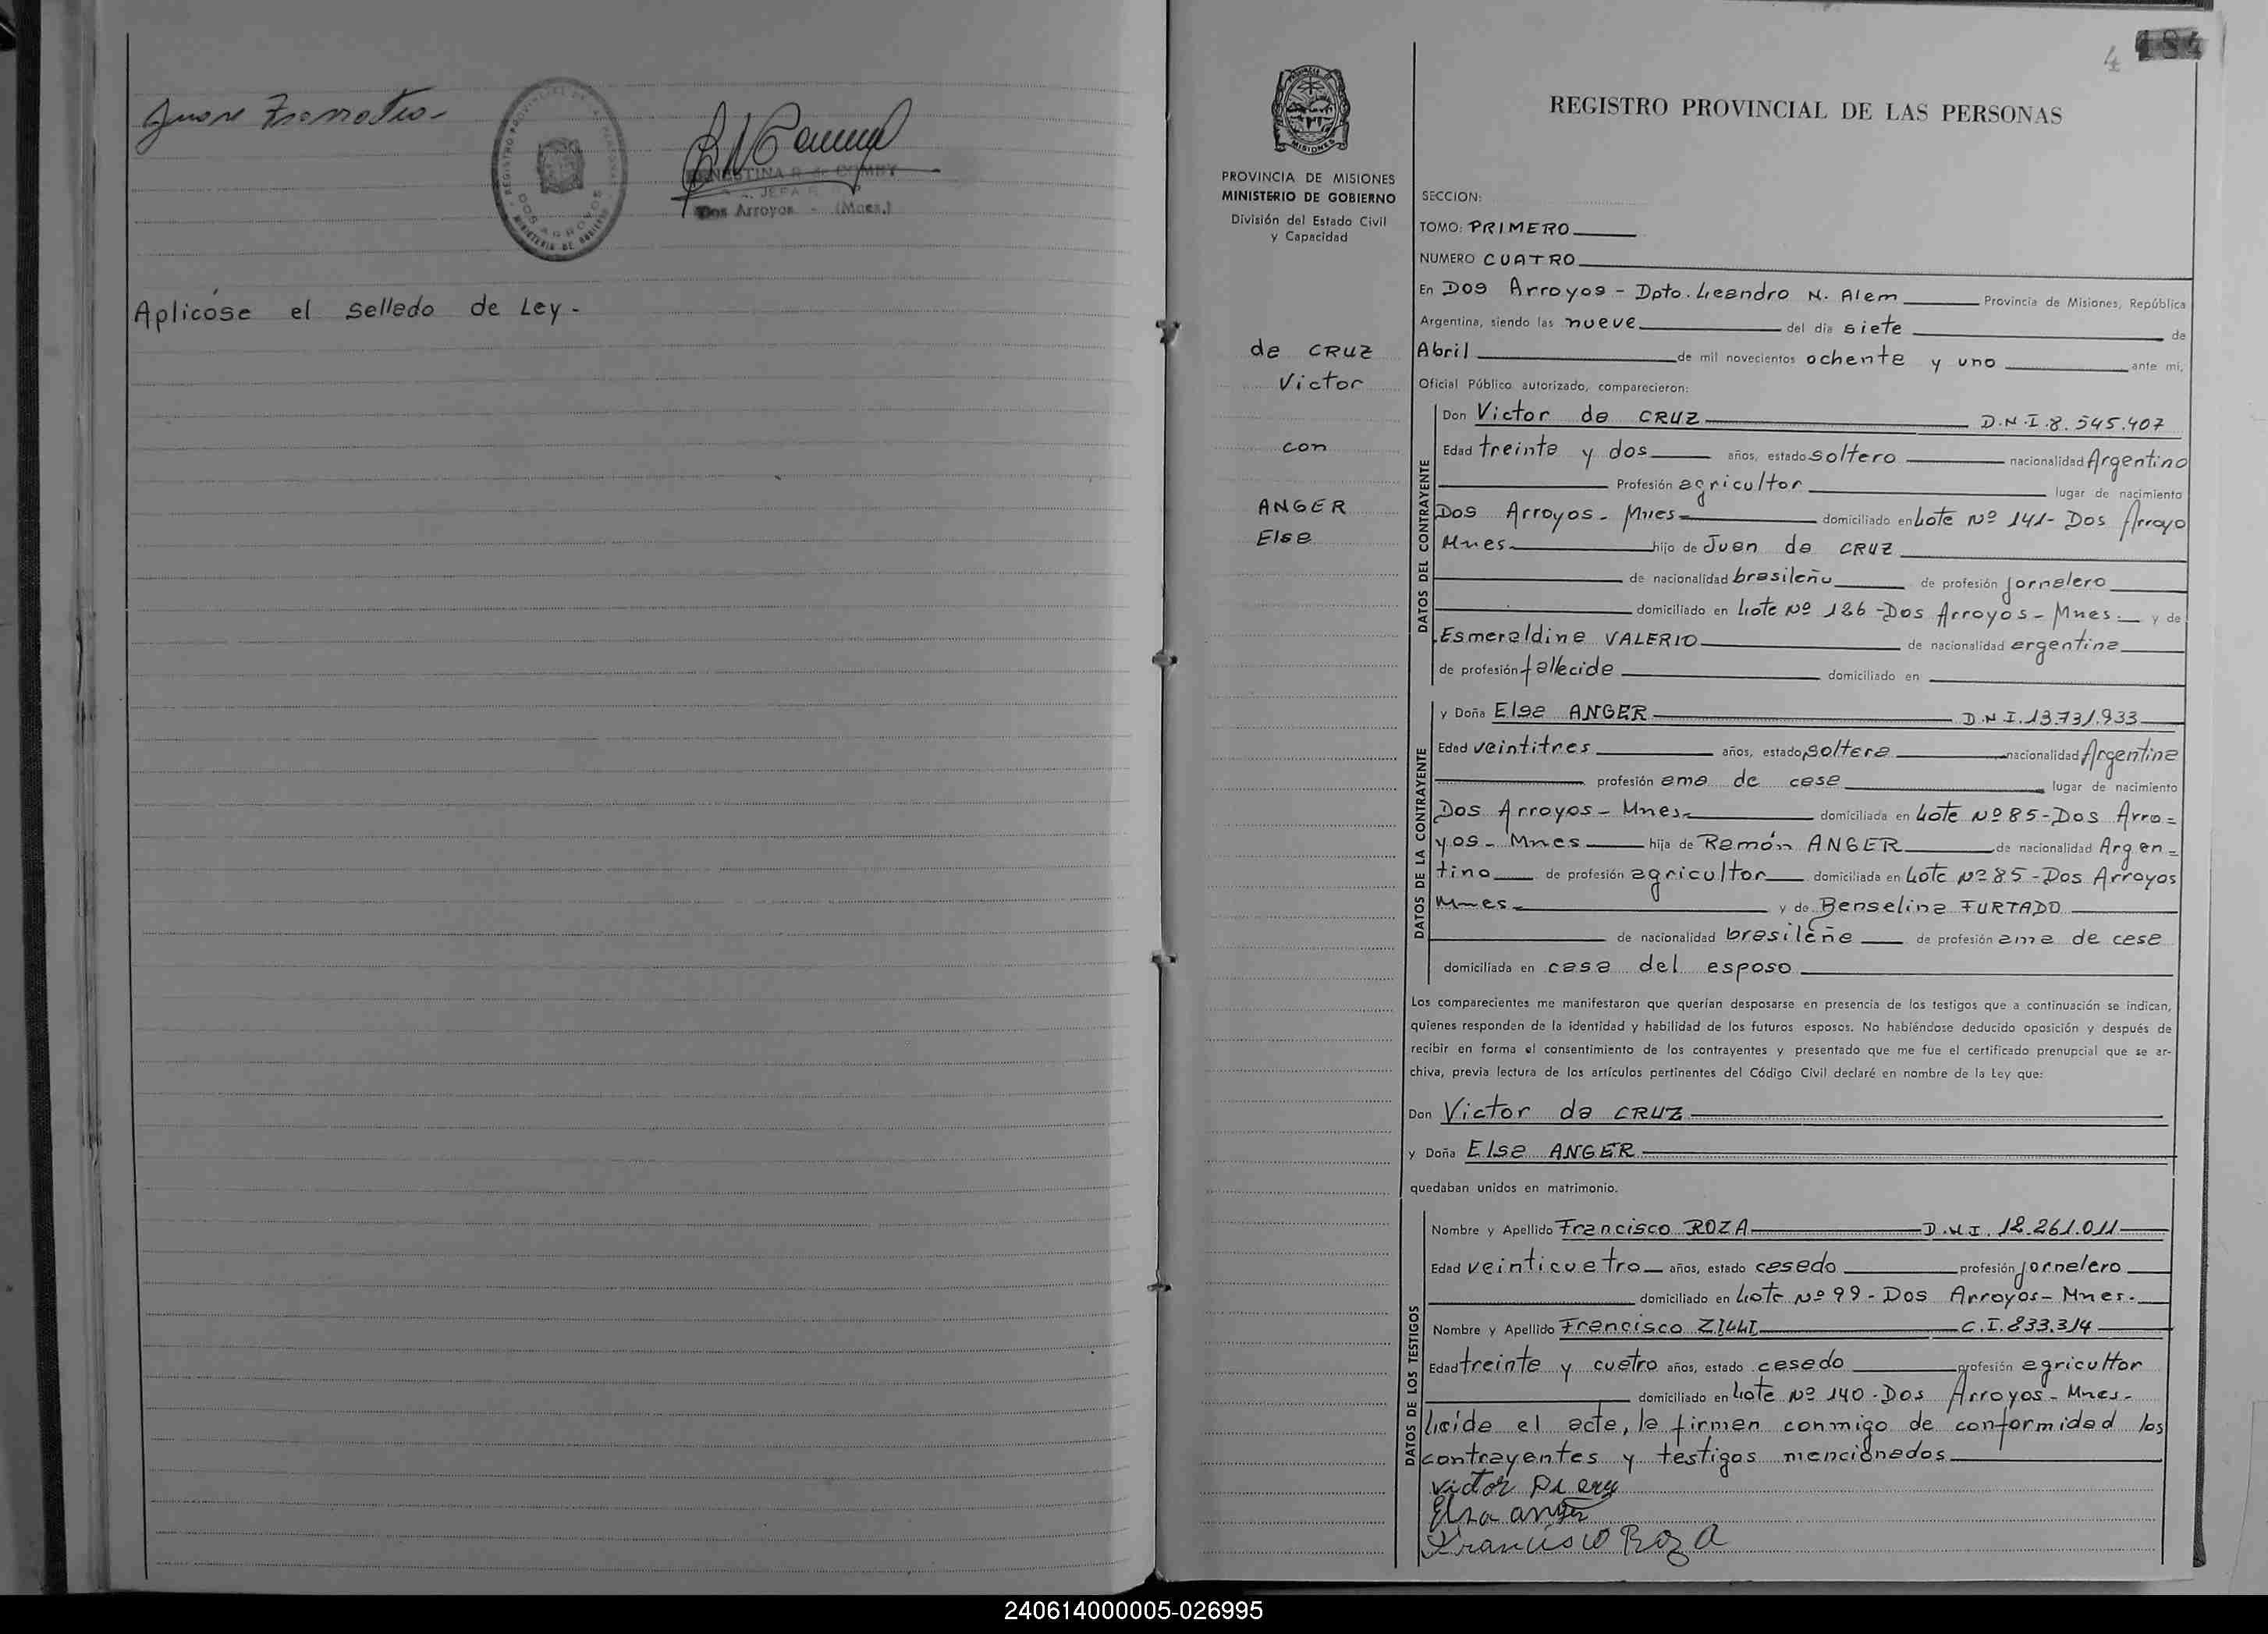 Aplicóse el sellado de Ley.-
REGISTRO PROVINCIAL
DOS ARROYOS
MINISTERIO DE GOBIERNO
JEFA
Dos Arroyos - (Mnes.)
4
PROVINCIA DE MISIONES
MINISTERIO DE GOBIERNO
División del Estado Civil
y Capacidad
de CRUZ
Victor
con
ANGER
Elsa
REGISTRO PROVINCIAL DE LAS PERSONAS
SECCION:
TOMO: PRIMERO
NUMERO CUATRO
En Dos Arroyos - Dpto. Leandro N. Alem Provincia de Misiones, República
Argentina, siendo las nueve del día siete de
Abril de mil novecientos ochenta y uno ante mí,
Oficial Público autorizado, comparecieron:
DATOS DEL CONTRAYENTE
Don Victor da CRUZ D.N.I. 8.545.407
Edad treinta y dos años, estado soltero nacionalidad Argentino
Profesión agricultor lugar de nacimiento
Dos Arroyos - Mnes- domiciliado en Lote Nº 141- Dos Arroyo
Mnes. hijo de Juan da CRUZ
de nacionalidad brasileño de profesión jornalero
domiciliado en Lote Nº 126 - Dos Arroyos - Mnes. y de
Esmeraldina VALERIO de nacionalidad argentina
de profesión fallecida domiciliado en
DATOS DE LA CONTRAYENTE
y Doña Elsa ANGER D.N.I. 13.731.933
Edad veintitres años, estado soltera nacionalidad Argentina
profesión ama de casa lugar de nacimiento
Dos Arroyos - Mnes. domiciliada en Lote Nº 85 - Dos Arro=
yos - Mnes hija de Ramón ANGER de nacionalidad Argen=
tino de profesión agricultor domiciliada en Lote Nº 85 - Dos Arroyos
Mnes. y de Benselina FURTADO
de nacionalidad brasileña de profesión ama de casa
domiciliada en casa del esposo
Los comparecientes me manifestaron que querían desposarse en presencia de los testigos que a continuación se indican,
quienes responden de la identidad y habilidad de los futuros esposos. No habiéndose deducido oposición y después de
recibir en forma el consentimiento de los contrayentes y presentado que me fue el certificado prenupcial que se ar-
chiva, previa lectura de los artículos pertinentes del Código Civil declaré en nombre de la Ley que:
Don Victor da CRUZ
y Doña Elsa ANGER
quedaban unidos en matrimonio.
DATOS DE LOS TESTIGOS
Nombre y Apellido Francisco ROZA D.N.I. 12.261.011
Edad veinticuatro años, estado casado profesión jornalero
domiciliado en Lote Nº 99 - Dos Arroyos - Mnes.
Nombre y Apellido Francisco ZILLI C.I. 833.314
Edad treinta y cuatro años, estado casado profesión agricultor
domiciliado en Lote Nº 140 - Dos Arroyos - Mnes-
Leída el acta, la firman conmigo de conformidad los
contrayentes y testigos mencionados
Elsa anger
Francisco Roza
240614000005-026995